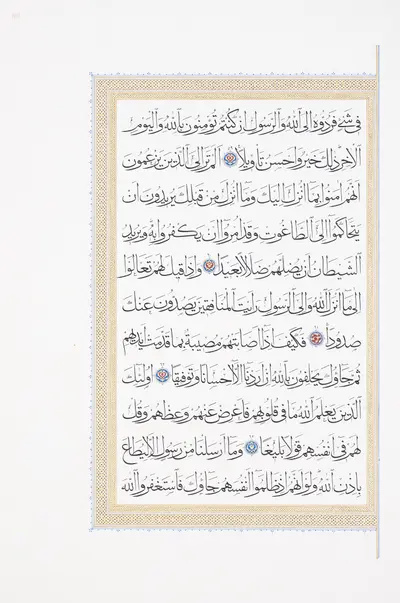 فِى شَىْءٍ فَرُدُّوهُ إِلَى ٱللَّهِ وَٱلرَّسُولِ إِن كُنتُمْ تُؤْمِنُونَ بِٱللَّهِ وَٱلْيَوْمِ
ٱلْأَخِرِ ذَٰلِكَ خَيْرٌ وَأَحْسَنُ تَأْوِيلًا أَلَمْ تَرَ إِلَى ٱلَّذِينَ يَزْعُمُونَ
أَنَّهُمْ ءَامَنُوا۟ بِمَآ أُنزِلَ إِلَيْكَ وَمَآ أُنزِلَ مِن قَبْلِكَ يُرِيدُونَ أَن
يَتَحَاكَمُوٓا۟ إِلَى ٱلطَّاغُوتِ وَقَدْ أُمِرُوٓا۟ أَن يَكْفُرُوا۟ بِهِۦ وَيُرِيدُ
ٱلشَّيْطَانُ أَن يُضِلَّهُمْ ضَلَالًا بَعِيدًا وَإِذَا قِيلَ لَهُمْ تَعَالَوْا۟
إِلَىٰ مَآ أَنزَلَ ٱللَّهُ وَإِلَى ٱلرَّسُولِ رَأَيْتَ ٱلْمُنَافِقِينَ يَصُدُّونَ عَنكَ
صُدُودًا فَكَيْفَ إِذَآ أَصَابَتْهُم مُّصِيبَةٌ بِمَا قَدَّمَتْ أَيْدِيهِمْ
ثُمَّ جَآءُوكَ يَحْلِفُونَ بِٱللَّهِ إِنْ أَرَدْنَآ إِلَّآ إِحْسَانًا وَتَوْفِيقًا أُو۟لَٰٓئِكَ
ٱلَّذِينَ يَعْلَمُ ٱللَّهُ مَا فِى قُلُوبِهِمْ فَأَعْرِضْ عَنْهُمْ وَعِظْهُمْ وَقُل
لَّهُمْ فِىٓ أَنفُسِهِمْ قَوْلًا بَلِيغًا وَمَآ أَرْسَلْنَا مِن رَّسُولٍ إِلَّا لِيُطَاعَ
بِإِذْنِ ٱللَّهِ وَلَوْ أَنَّهُمْ إِذ ظَّلَمُوٓا۟ أَنفُسَهُمْ جَآءُوكَ فَٱسْتَغْفَرُوا۟ ٱللَّهَ